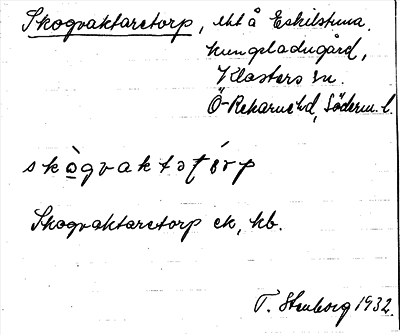 Skogvaktaretorp, lht å Eskilstuna
kungsladugård,
Klosters sn.
Ö-Rekarnehd, Söderm. l.
skògvaktətórp
Skogvaktaretorp ek, kb.
T. Stenborg 1932.